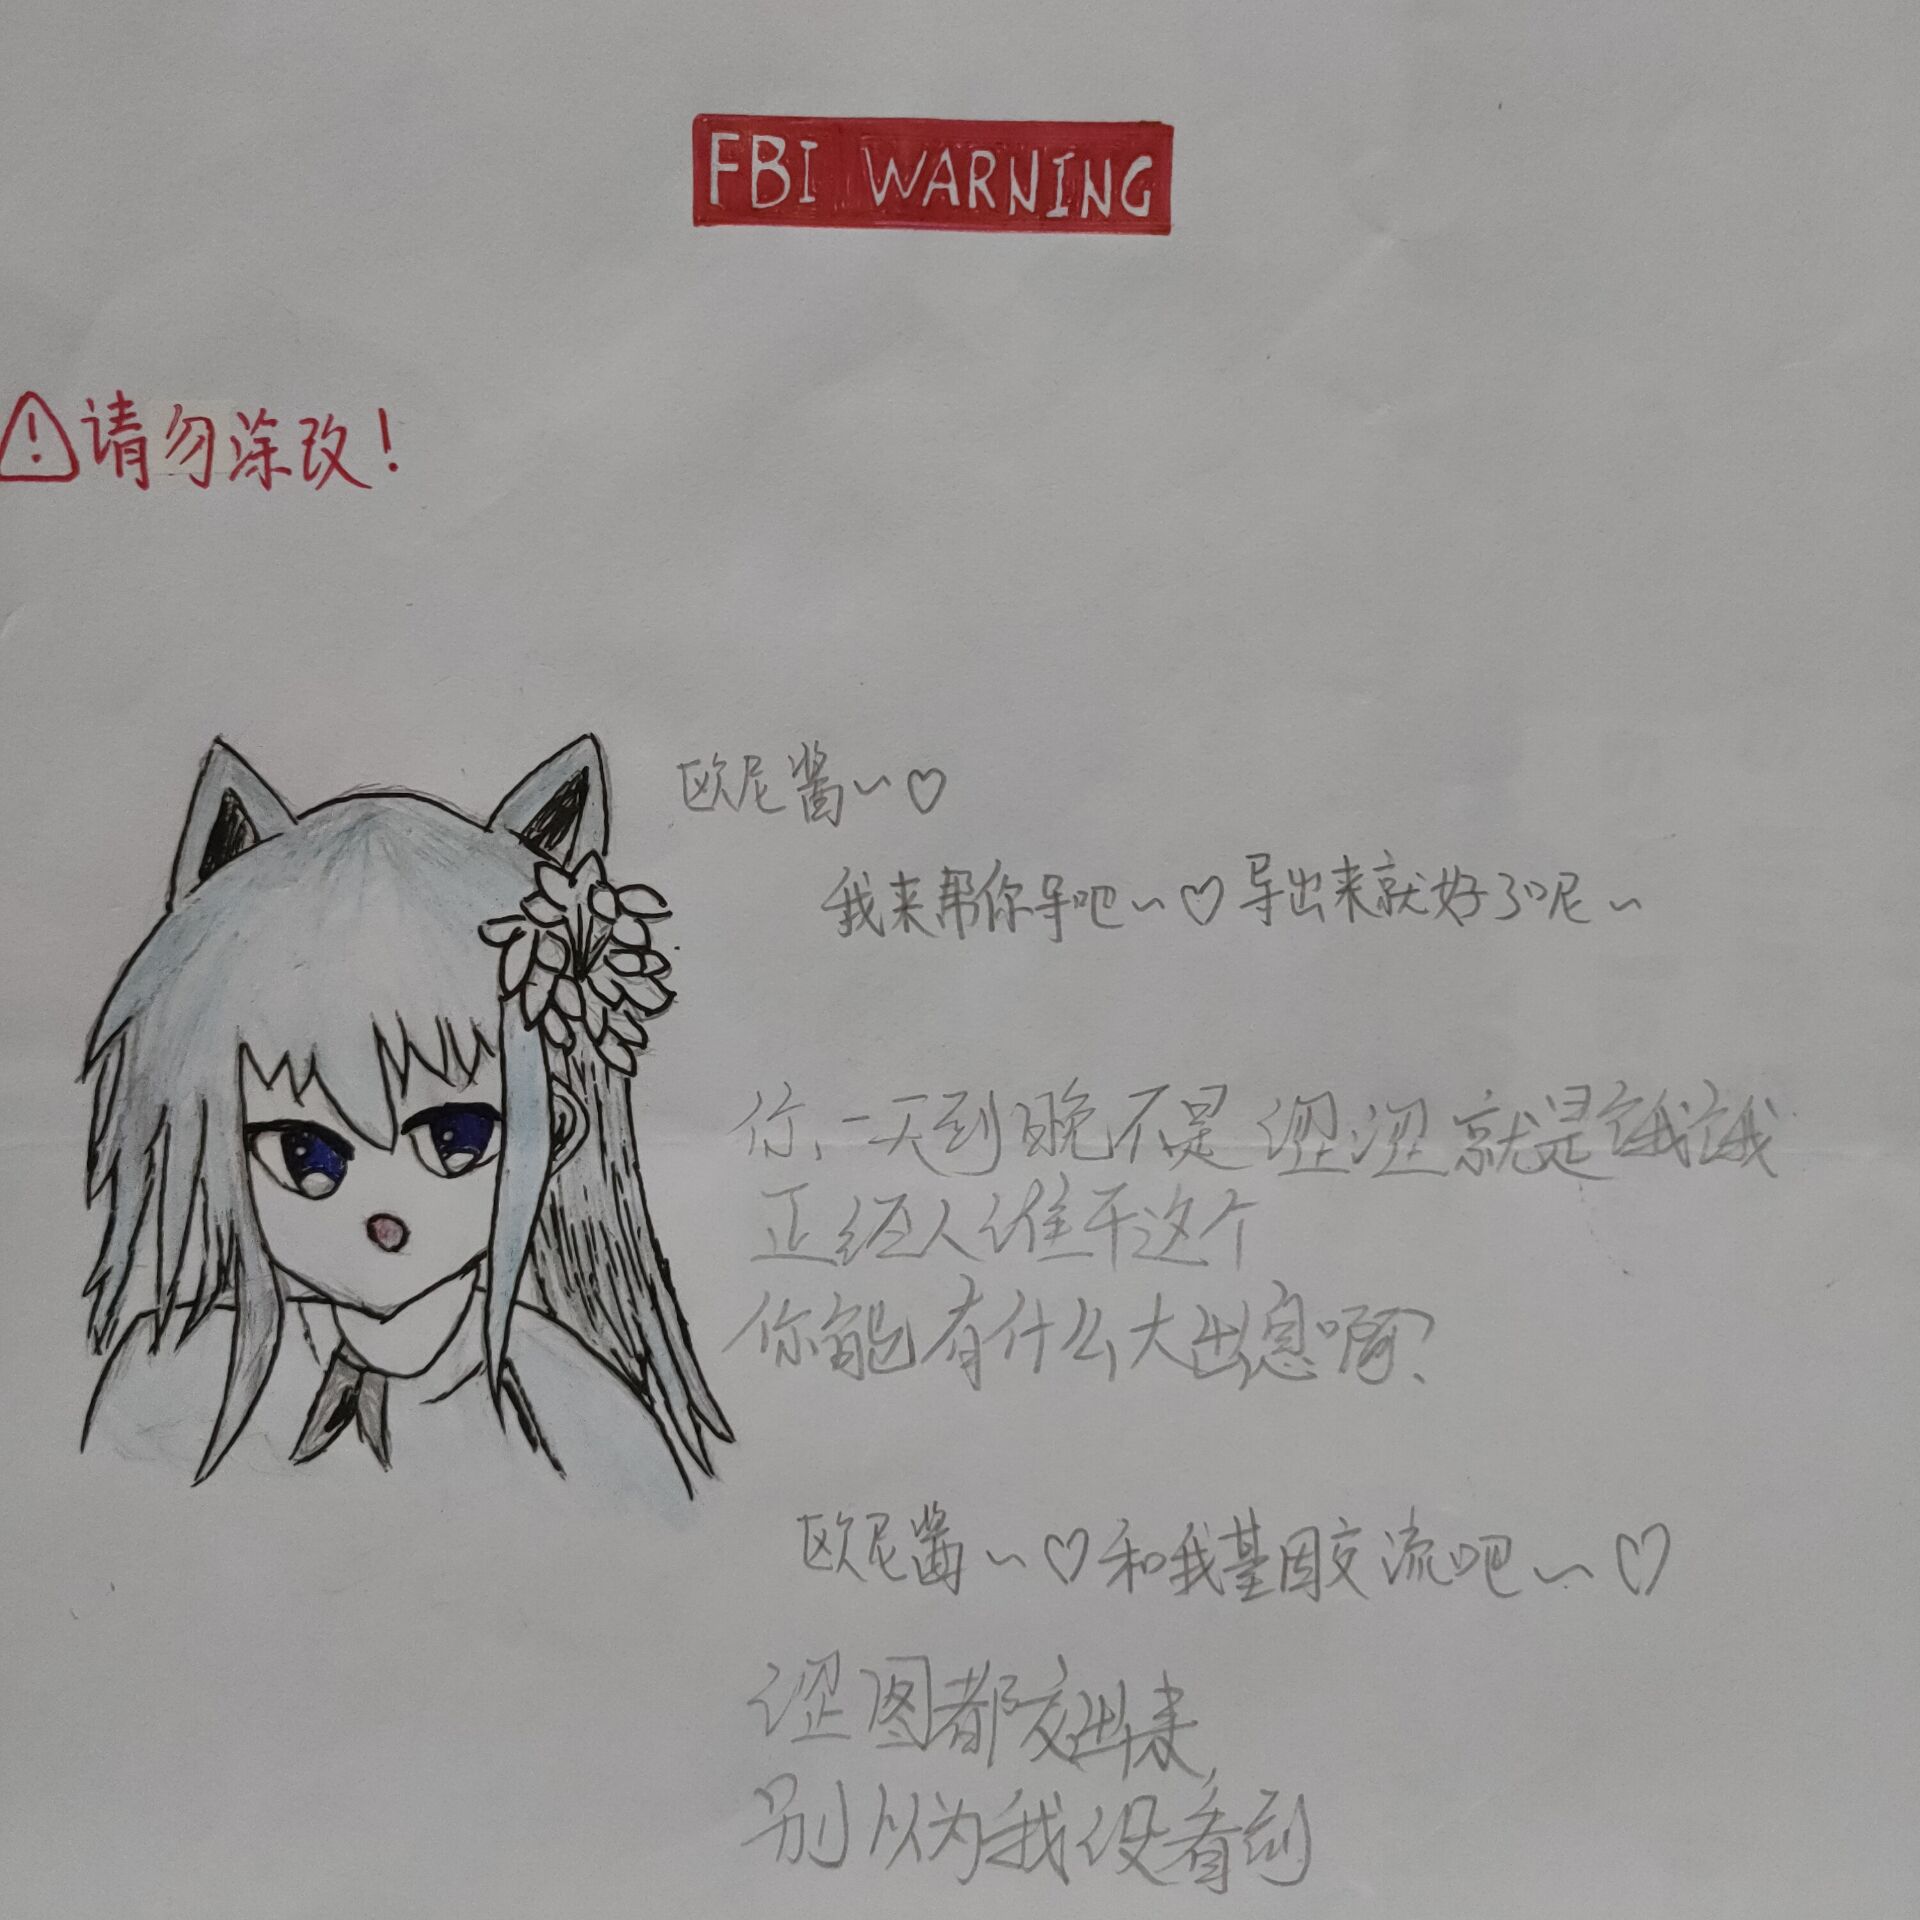 FBI WARNING
请勿涂改！
欧尼酱~♡
我来帮你导吧~♡导出来就好了呢~
你一天到晚不是涩涩就是
正经人谁干这个
你能有什么大出息啊?
欧尼酱~♡和我基因交流吧~♡
涩图都交出来,
别以为我没看到